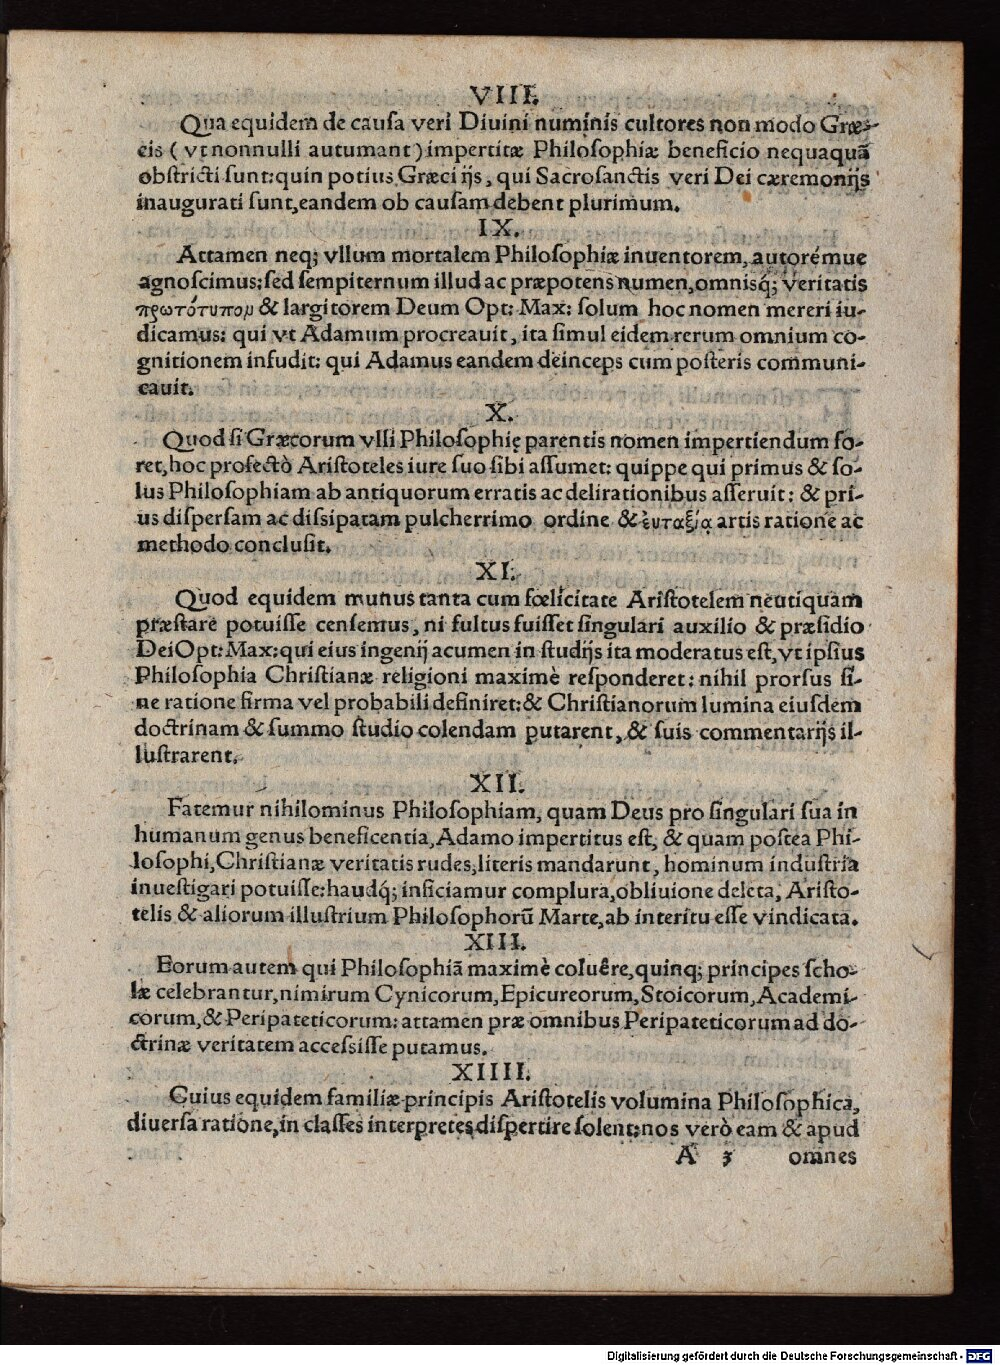 VIII.
Qua equidem de causa veri Diuini numinis cultores non modo Græ-
cis (vt nonnulli autumant) impertitæ Philosophiæ beneficio nequaquā
obstricti sunt: quin potius Græci ijs, qui Sacrosanctis veri Dei cæremonijs
inaugurati sunt, eandem ob causam debent plurimum.
IX.
Attamen neq; vllum mortalem Philosophiæ inuentorem, autorémue
agnoscimus: sed sempiternum illud ac præpotens numen, omnisq́; veritatis
πρωτότυπομ & largitorem Deum Opt: Max: solum hoc nomen mereri iu-
dicamus: qui vt Adamum procreauit, ita simul eidem rerum omnium co-
gnitionem infudit: qui Adamus eandem deinceps cum posteris communi-
cauit.
X.
Quod si Græcorum vlli Philosophię parentis nomen impertiendum fo-
ret, hoc profectò Aristoteles iure suo sibi assumet: quippe qui primus & so-
lus Philosophiam ab antiquorum erratis ac delirationibus asseruit: & pri-
us dispersam ac dissipatam pulcherrimo ordine & ἐυταξίᾳ artis ratione ac
methodo conclusit.
XI.
Quod equidem munus tanta cum fœlicitate Aristotelem neutiquam
præstare potuisse censemus, ni fultus fuisset singulari auxilio & præsidio
Dei Opt: Max: qui eius ingenij acumen in studijs ita moderatus est, vt ipsius
Philosophia Christianæ religioni maximè responderet: nihil prorsus si-
ne ratione firma vel probabili definiret: & Christianorum lumina eiusdem
doctrinam & summo studio colendam putarent, & suis commentarijs il-
lustrarent.
XII.
Fatemur nihilominus Philosophiam, quam Deus pro singulari sua in
humanum genus beneficentia, Adamo impertitus est, & quam postea Phi-
losophi, Christianæ veritatis rudes, literis mandarunt, hominum industria
inuestigari potuisse: haudq́; inficiamur complura, obliuione deleta, Aristo-
telis & aliorum illustrium Philosophorū Marte, ab interitu esse vindicata.
XIII.
Eorum autem qui Philosophiā maximè coluêre, quinq; principes scho-
læ celebrantur, nimirum Cynicorum, Epicureorum, Stoicorum, Academi-
corum, & Peripateticorum: attamen præ omnibus Peripateticorum ad do-
ctrinæ veritatem accessisse putamus.
XIIII.
Cuius equidem familiæ principis Aristotelis volumina Philosophica,
diuersa ratione, in classes interpretes dispertire solent: nos verò eam & apud
A 3 omnes
Digitalisierung gefördert durch die Deutsche Forschungsgemeinschaft - DFG